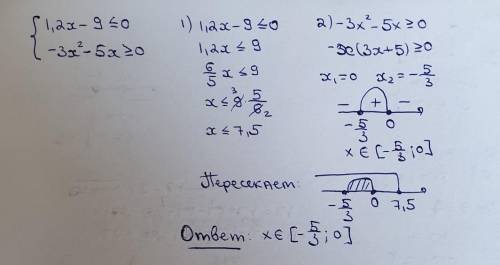 { 1,2x-9≤0
-3x²-5x≥0
1) 1,2x-9≤0
1,2x≤9
6/5 x≤9
x≤ 9³ · 5/6₂
x≤7,5
2) -3x²-5x≥0
-x(3x+5)≥0
x₁=0 x₂=-5/3
- + -
-5/3 0
x∈[-5/3;0]
Пересекаем:
-5/3 0 7,5
Ответ: x∈[-5/3;0]